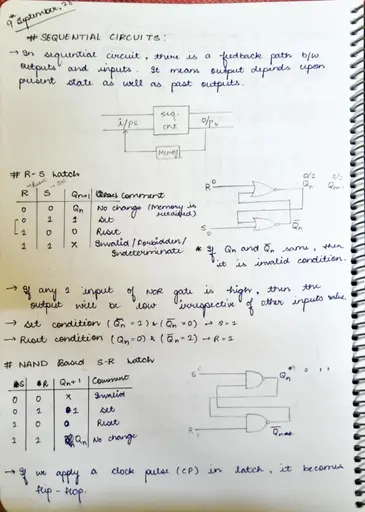 9th September, 23
# SEQUENTIAL CIRCUITS:
→ In sequential circuit, there is a feedback path b/w
outputs and inputs. It means output depends upon
present state as well as past outputs.
seq.
i/ps ckt o/ps
Memory
# R-S Latch
Reset Set
R S Qn+1 Comment
0 0 Qn No change (Memory is
0 1 1 Set
1 0 0 Reset
1 1 X Invalid/Forbidden/
Indeterminate
R 0 0/1 Qn
S 0 Q̅n
* If Qn and Q̅n same, then
it is invalid condition.
→ If any 1 input of NOR gate is high, then the
output will be low irrespective of other inputs value.
→ Set condition (Qn = 1) & (Q̅n = 0) → S = 1
→ Reset condition (Qn = 0) & (Q̅n = 1) → R = 1
# NAND Based S-R Latch
S R Qn+1 Comment
0 0 X Invalid
0 1 1 Set
1 0 0 Reset
1 1 Qn No change
S Qn
R Q̅n
→ If we apply a clock pulse (CP) in latch, it becomes
flip-flop.